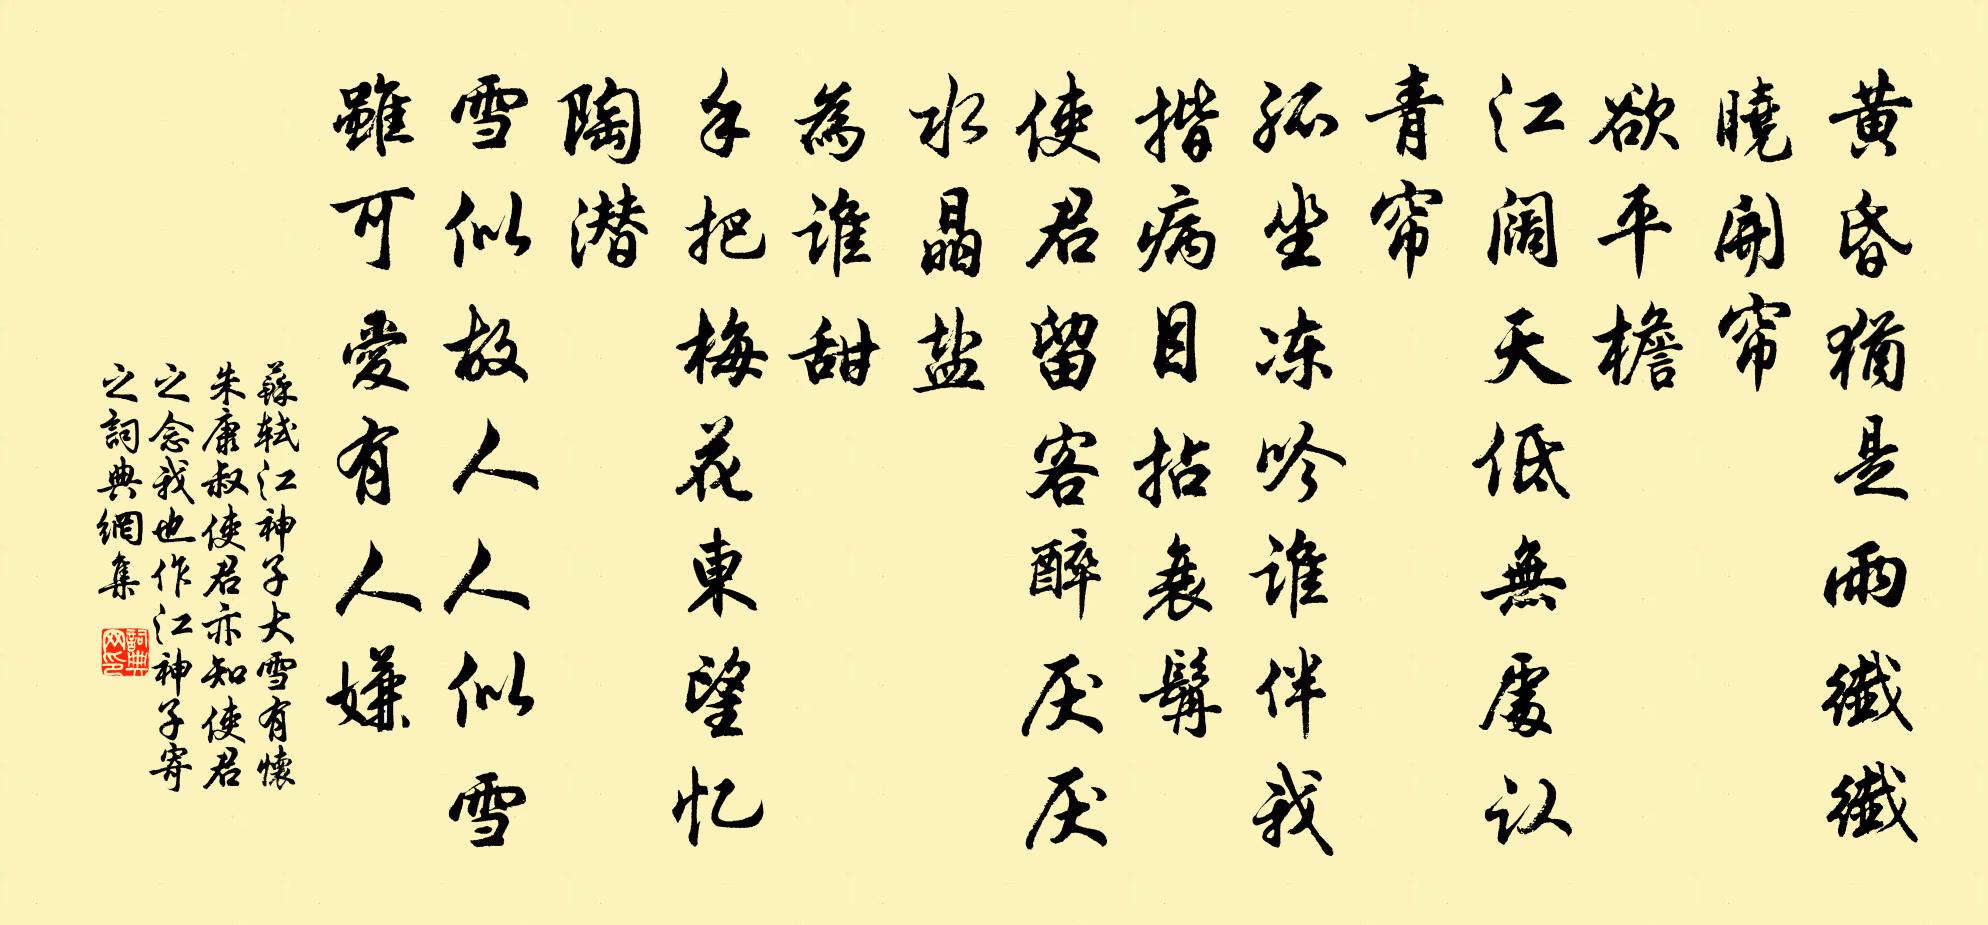 黄昏猶是雨纖纖
曉開帘
欲平檐
江阔天低無處认
青帘
孤坐冻吟谁伴我
揩病目拈衰髯
使君留客醉厌厌
水晶盐
為谁甜
手把梅花東望忆
陶潜
雪似故人人似雪
雖可愛有人嫌
蘇轼江神子大雪有懷
朱康叔使君亦知使君
之念我也作江神子寄
之詞典網集
詞典网印